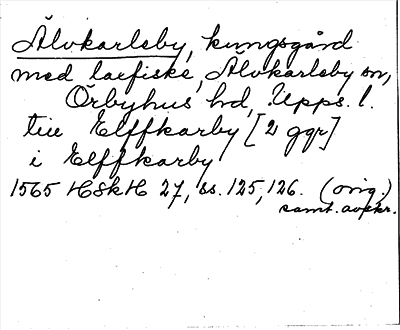 Älvkarleby, kungsgård
med laxfiske, Älvkarleby sn,
Örbyhus hd, Upps. l.
till Elffkarby [2 ggr]
i Elffkarby
1565 HSkH 27, ss. 125, 126. (orig.)
samt. avskr.